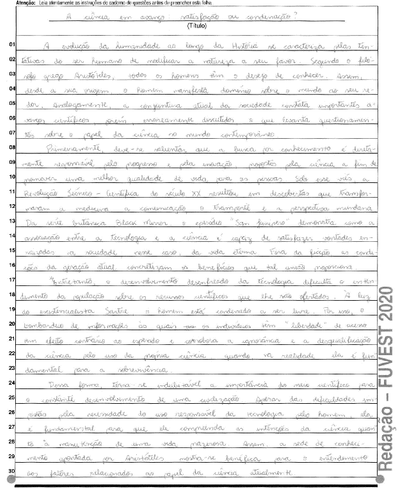 Atenção: Leia atentamente as instruções do caderno de questões antes de preencher esta folha.
A ciência em avanço: satisfação ou condenação?
(Título)
01 A evolução da humanidade ao longo da História se caracteriza pelas ten-
02 tativas do ser humano de modificar a natureza a seu favor. Segundo o filó-
03 sofo grego Aristóteles, todos os homens têm o desejo de conhecer. Assim,
04 desde a sua origem, o homem manifesta domínio sobre o mundo ao seu re-
05 dor. Analogamente, a conjuntura atual da sociedade contém importantes a-
06 vanços científicos porém discutidos o que levanta questionamen-
07 tos sobre o papel da ciência no mundo contemporâneo.
08 Primeiramente, deve-se salientar que a busca por conhecimento é direta-
09 mente responsável pelo progresso e pela inovação pela ciência a fim de
10 promover uma melhor qualidade de vida para as pessoas.
11 Revolução Técnico-Científica do século XX em descobertas que transfor-
12 maram a medicina, a comunicação, o transporte e a perspectiva mundana.
13 Da série britânica Black Mirror, o episódio "San Junipero" demonstra como a
14 entre a tecnologia e a ciência é capaz de satisfazer vontades
15 a sociedade nesse caso, da vida eterna. Fora da ficção, as
16 da geração atual os benefícios que
17 Entretanto, o desenvolvimento desenfreado da tecnologia dificulta o enten-
18 dimento da população sobre os recursos científicos que lhe são ofertados. À luz
19 do existencialista Sartre, o homem está condenado a ser livre. Por isso, o
20 bombardeio de informações os indivíduos têm "liberdade" de
21 um efeito contrário ao esperado e a ignorância e a desqualificação
22 da ciência pelo uso da própria ciência, quando na realidade ela é fun-
23 damental para a sobrevivência.
24 Dessa forma, torna-se indubitável a importância do meio científico para
25 o constante desenvolvimento de uma civilização. Apesar das dificuldades
26 pela necessidade do uso responsável da tecnologia pelo homem, ela
27 é fundamental para que ele compreenda as intenções da ciência quan-
28 to à manutenção de uma vida Assim, a sede de conheci-
29 mento apontada por Aristóteles mostra-se benéfica para o entendimento
30 dos fatores relacionados ao papel da ciência atualmente.
Redação – FUVEST 2020